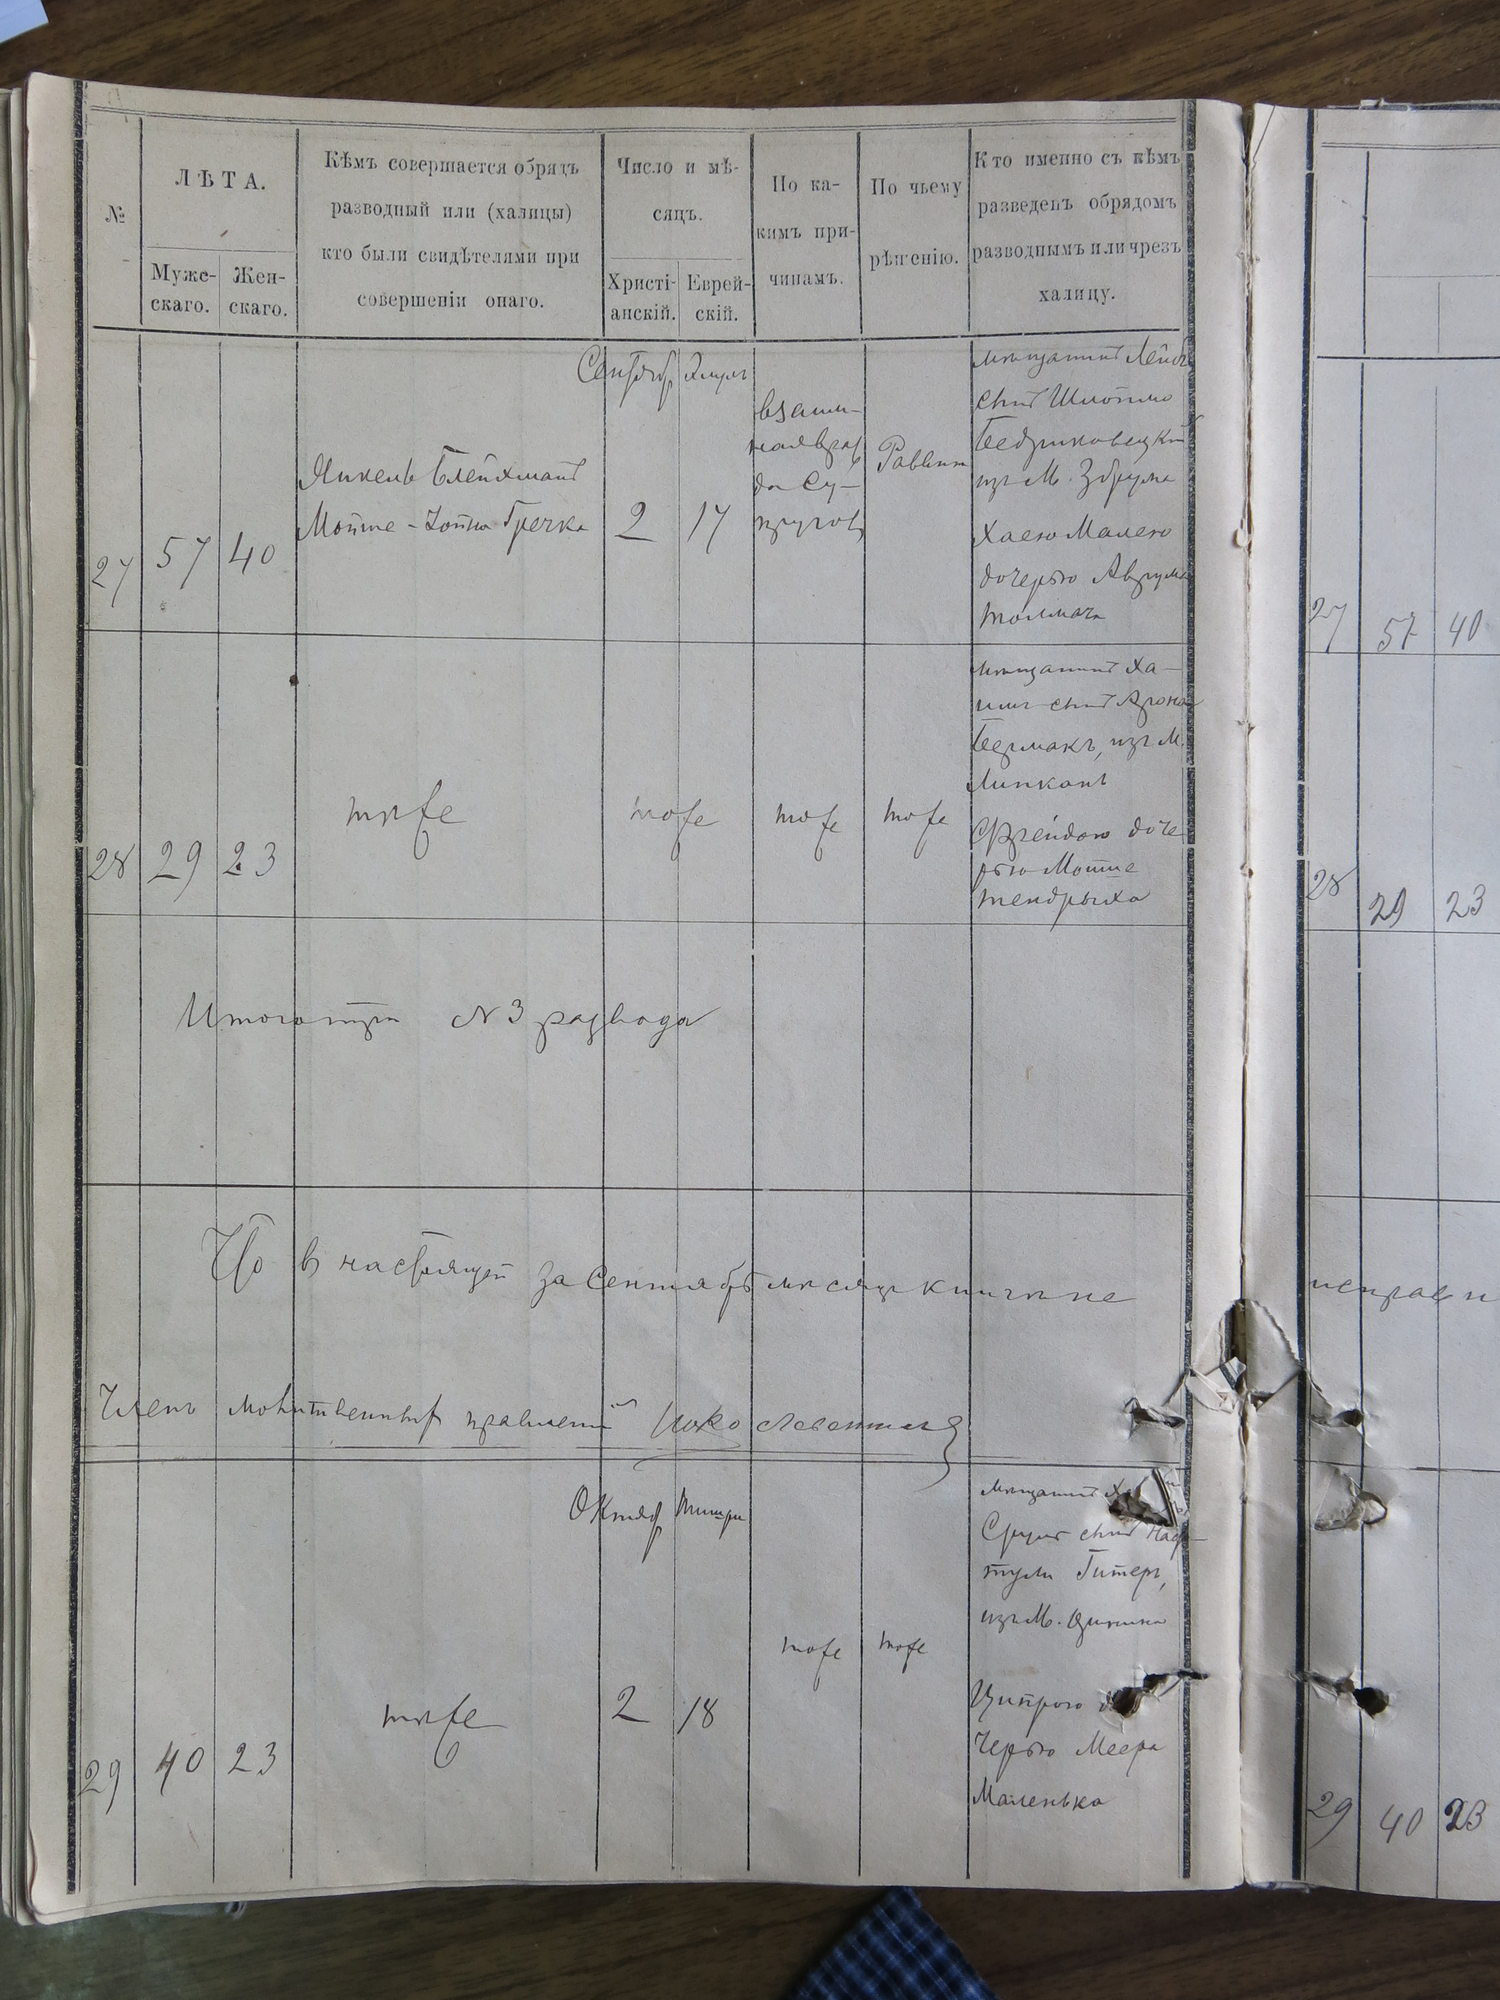 №
ЛѢТА.
Муже-
скаго.
Жен-
скаго.
Кѣмъ совершается обрядъ
разводный или (халицы)
кто были свидѣтелями при
совершеніи онаго.
Число и мѣ-
сяцъ.
Христі-
анскій.
Еврей-
скій.
По ка-
кимъ при-
чинамъ.
По чьему
рѣшенію.
Кто именно съ кѣмъ
разведенъ обрядомъ
разводнымъ или чрезъ
халицу.
27
57
40
Янкель Блейхманъ
Мойше - Гречка
Сентяб
2
Элулъ
17
взаим-
ная враж
да су-
пруговъ
Раввин
мещанинъ Лейбъ
сынъ Шлоймо
изъ М.
Хаею Малею
дочерью Аврума
толмача
28
29
23
тоже
тоже
тоже
тоже
мещанинъ Ха-
имъ сынъ Арона
Бермакъ, изъ М.
Липканъ
с Фрейдою доче
рью Мойше
тендрыха
Итого три № 3 развода
Что в настоящей за Сентябрь месяцъ книги не
Членъ молитвенныхъ правленій
29
40
23
тоже
Октяб
2
Тишри
18
тоже
тоже
мещанинъ
Сруль сынъ Наф-
тули Гитеръ,
изъ М.
Ципрою
черью Меера
Маленька
27
57
40
28
29
23
исправ
29
40
23